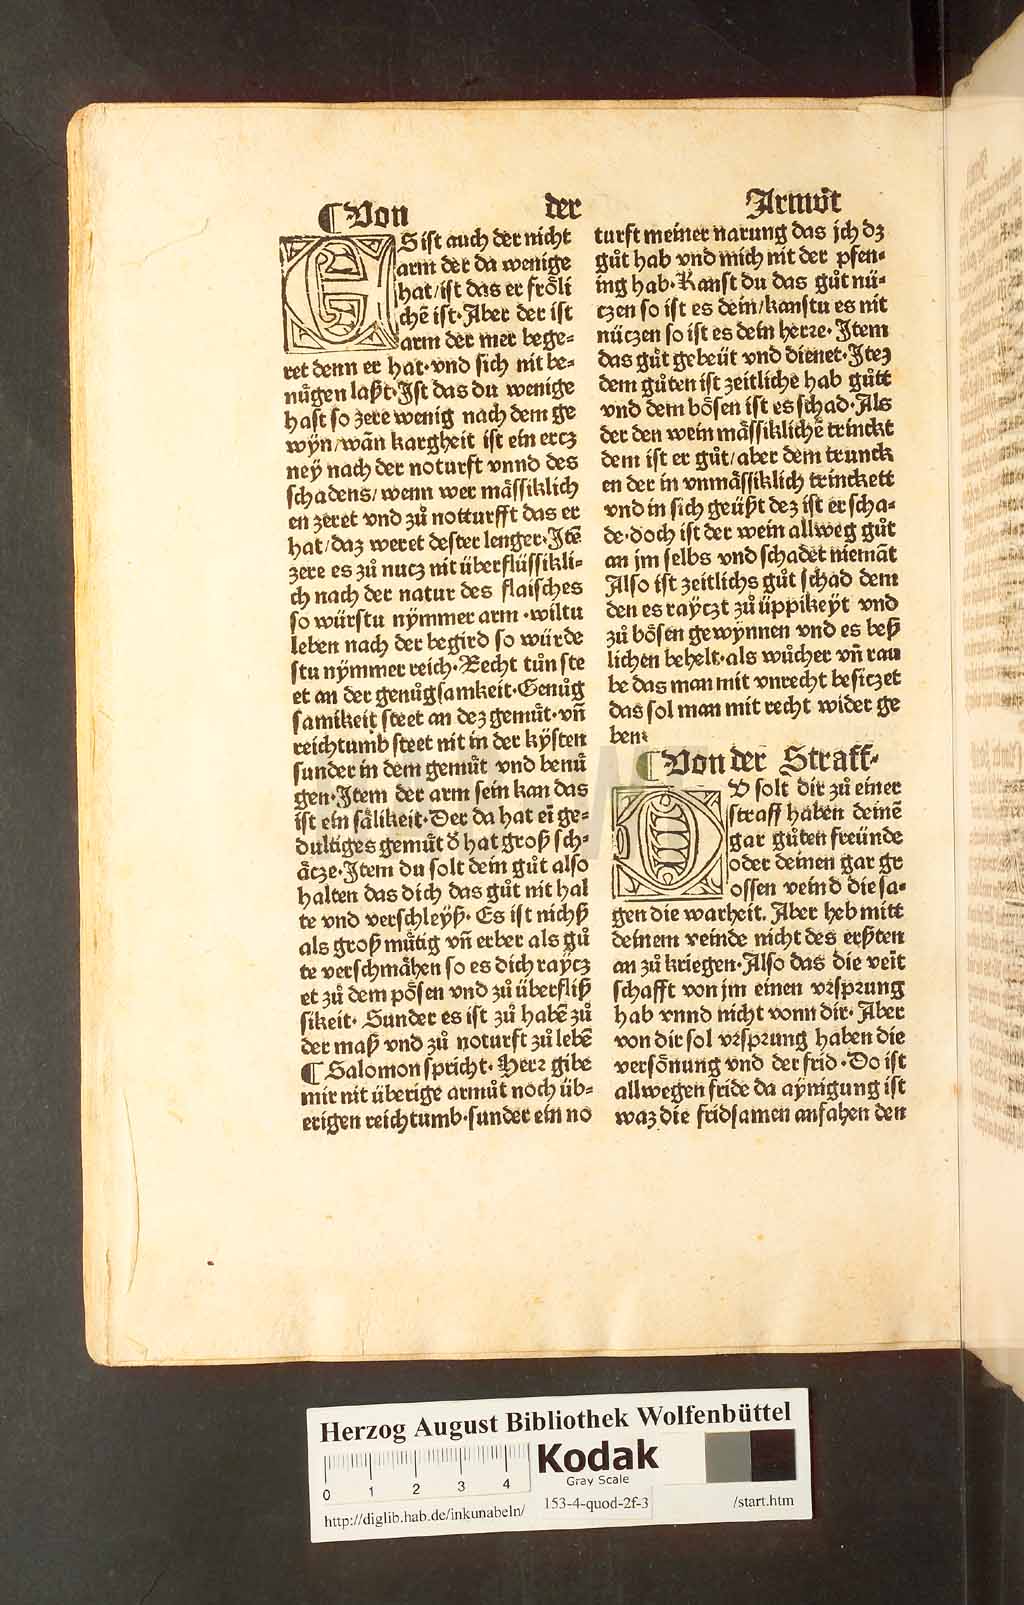 ¶Von der Armůt
ES ist auch der nicht
arm der da wenige
hat/ist das er frőli
chē ist·Aber der ist
arm der mer bege-
ret denn er hat·vnd sich nit be-
nůgen laßt·Ist das du wenige
hast so zere wenig nach dem ge
wÿn/wān kargheit ist ein ercz
neÿ nach der noturft vnnd des
schadens/wenn wer mȧssiklich
en zeret vnd zů notturfft das er
hat/daz weret dester lenger·Itē
zere es zů nucz nit überflüssikli-
ch nach der natur des flaisches
so würstu nÿmmer arm·wiltu
leben nach der begird so würde
stu nÿmmer reich·Recht tůn ste
et an der genůgsamkeit·Genůg
samikeit steet an dez gemůt·vn̄
reichtumb steet nit in der kÿsten
sunder in dem gemůt vnd benů
gen·Item der arm sein kan das
ist ein sȧlikeit·Der da hat ei̅ ge-
dultiges gemůt d̛ hat groß sch-
ȧcze·Item du solt dein gůt also
halten das dich das gůt nit hal
te vnd verschleÿß·Es ist nichß
als groß můtig vn̄ erber als gů
te verschmȧhen so es dich raÿcz
et zů dem pősen vnd zů überfliß
sikeit·Sunder es ist zů habē zů
der maß vnd zů noturft zů lebē
¶Salomon spricht·Herr gibe
mir nit überige armůt noch üb-
erigen reichtumb·sunder ein no
turft meiner narung das jch dz
gůt hab vnd mich nit der pfen-
ing hab·Kanst du das gůt nü-
czen so ist es dein/kanstu es nit
nüczen so ist es dein herre·Item
das gůt gebeüt vnd dienet·Itez
dem gůten ist zeitliche hab gůtt
vnd dem bősen ist es schad·Als
der den wein mȧssiklichē trinckt
dem ist er gůt/aber dem trunck
en der in vnmȧssiklich trinckett
vnd in sich geüßt dez ist er scha-
de·doch ist der wein allweg gůt
an jm selbs vnd schadet niemāt
Also ist zeitlichs gůt schad dem
den es raÿczt zů üppikeÿt vnd
zů bősen gewÿnnen vnd es beß
lichen behelt·als wůcher vn̄ rau
be das man mit vnrecht besiczet
das sol man mit recht wider ge
ben·
¶Von der Straff·
DV solt dir zů einer
straff haben deinē
gar gůten freünde
oder deinen gar gr
ossen veind die sa-
gen die warheit. Aber heb mitt
deinem veinde nicht des erßten
an zů kriegen·Also das die veīt
schafft von jm einen vrsprung
hab vnnd nicht vonn dir·Aber
von dir sol vrsprung haben die
versőnung vnd der frid·Do ist
allwegen fride da aÿnigung ist
waz die fridsamen anfahen den
Herzog August Bibliothek Wolfenbüttel
Kodak
Gray Scale
0 1 2 3 4
153-4-quod-2f-3
http://diglib.hab.de/inkunabeln/ /start.htm